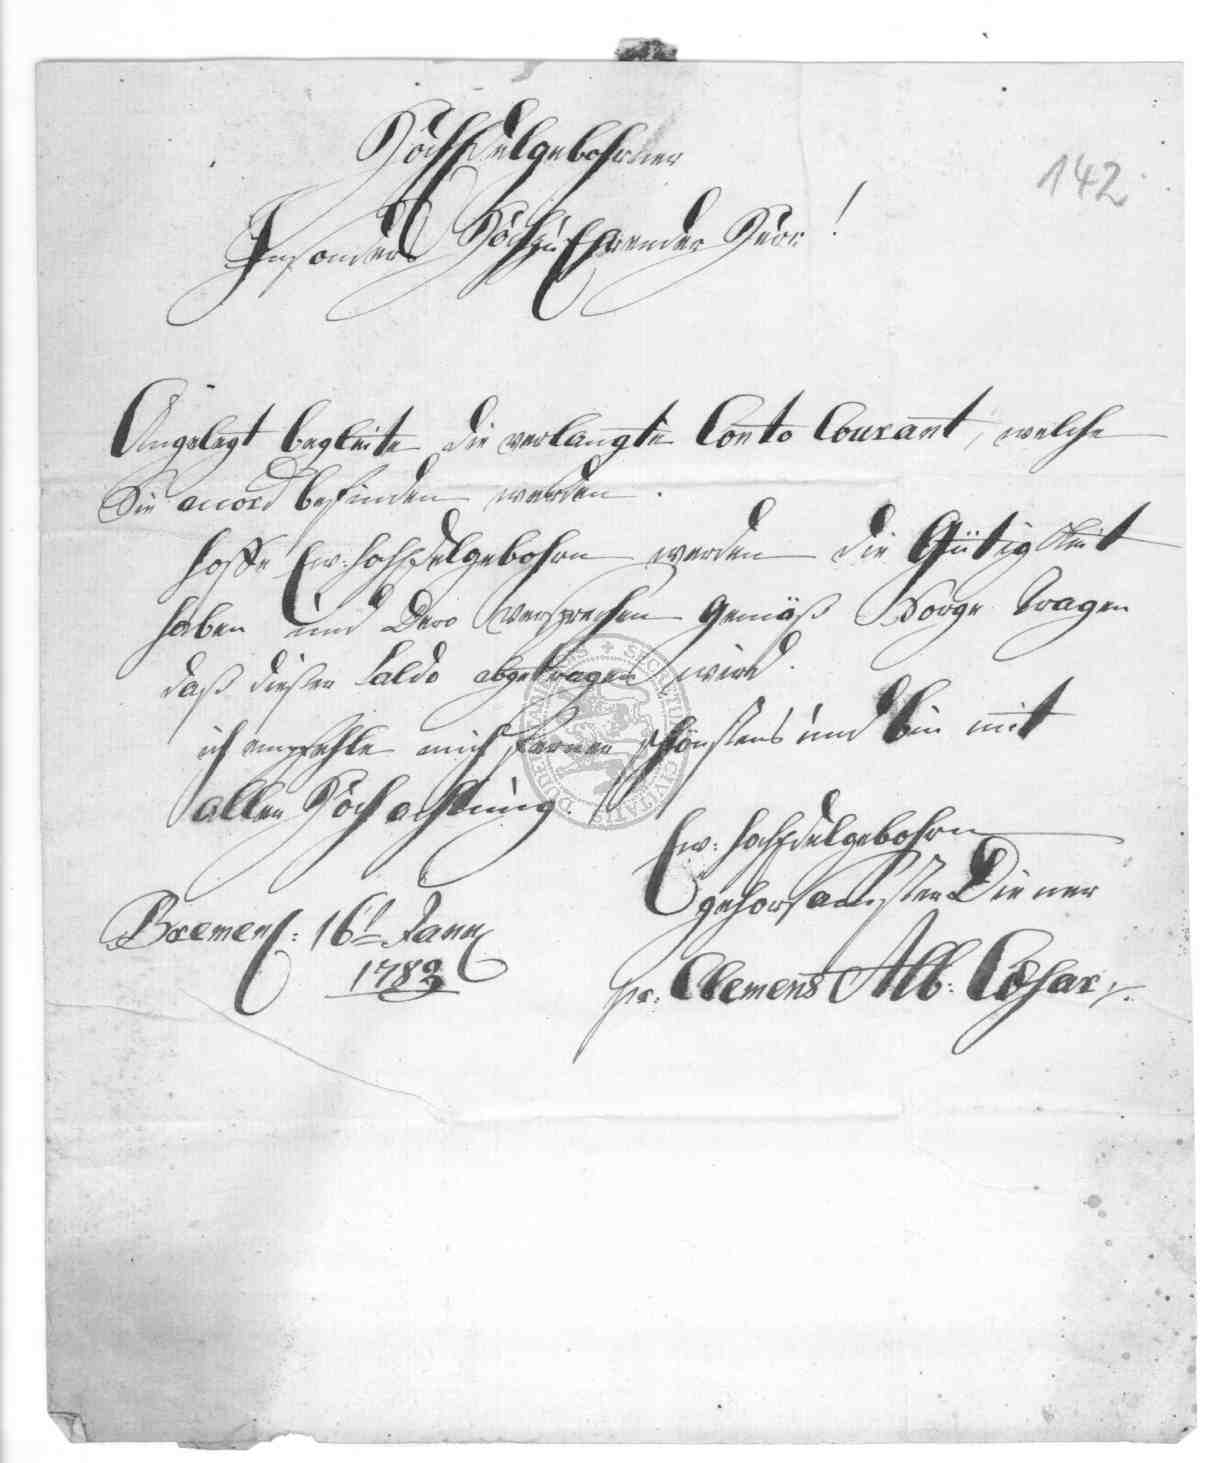 HochEdelgebohrner
142
Insonders HochzuEhrender Herr!
Angelegt begleite die verlangte Conto Courant, welche
Sie accord befinden werden.
hoffe Ew: HochEdelgebohrn werden die Gütigkeit
haben und Dero Versprechen Gemäß Sorge tragen
daß dieser Saldo abgetragen wird.
ich empfehle mich ferner schönstens und bin mit
aller Hochachtung.
Ew: HochEdelgebohrn
gehorsamster Diener
Bremen: 16t Janu
1783
pr: Clemens Alb: Cöhar
SECRETUM CIVITATIS